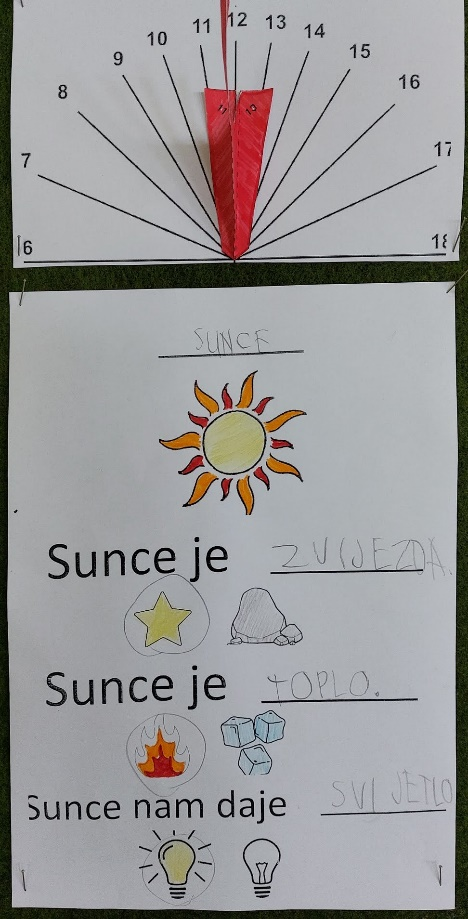 12
11 13
10 14
9 15
8 16
7 17
6 18
SUNCE
Sunce je ZVIJEZDA.
Sunce je TOPLO.
Sunce nam daje SVIJETLO